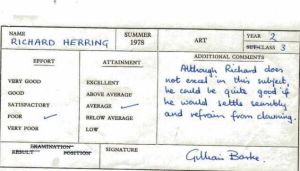 NAME
RICHARD HERRING
SUMMER
1978
ART
YEAR 2
SUB-CLASS 3
EFFORT
ATTAINMENT
ADDITIONAL COMMENTS
VERY GOOD
EXCELLENT
GOOD
ABOVE AVERAGE
SATISFACTORY
AVERAGE ✓
POOR ✓
BELOW AVERAGE
VERY POOR
LOW
Although Richard does
not excel in this subject,
he could be quite good if
he would settle sensibly
and refrain from clowning.
EXAMINATION
RESULT POSITION
SIGNATURE
Gillian Barke.